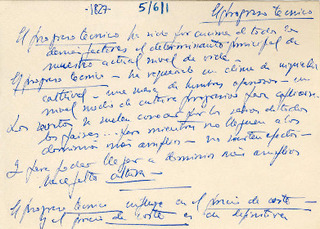 -1827- 5/6/1 El progreso técnico
El progreso técnico ha sido por encima de todos los
demás factores el determinante principal de
nuestro actual nivel de vida.
El progreso técnico - ha requerido un clima de inquietud
cultural - una masa de hombres - un
nivel medio de cultura
Los se suelen por los de todos
los países... pero mientras no lleguen a los
dominios más amplios - no surten efecto -
Y para poder llegar a dominios más amplios
hace falta cultura -
El progreso técnico influye en el precio de coste -
y el precio de coste es en definitiva